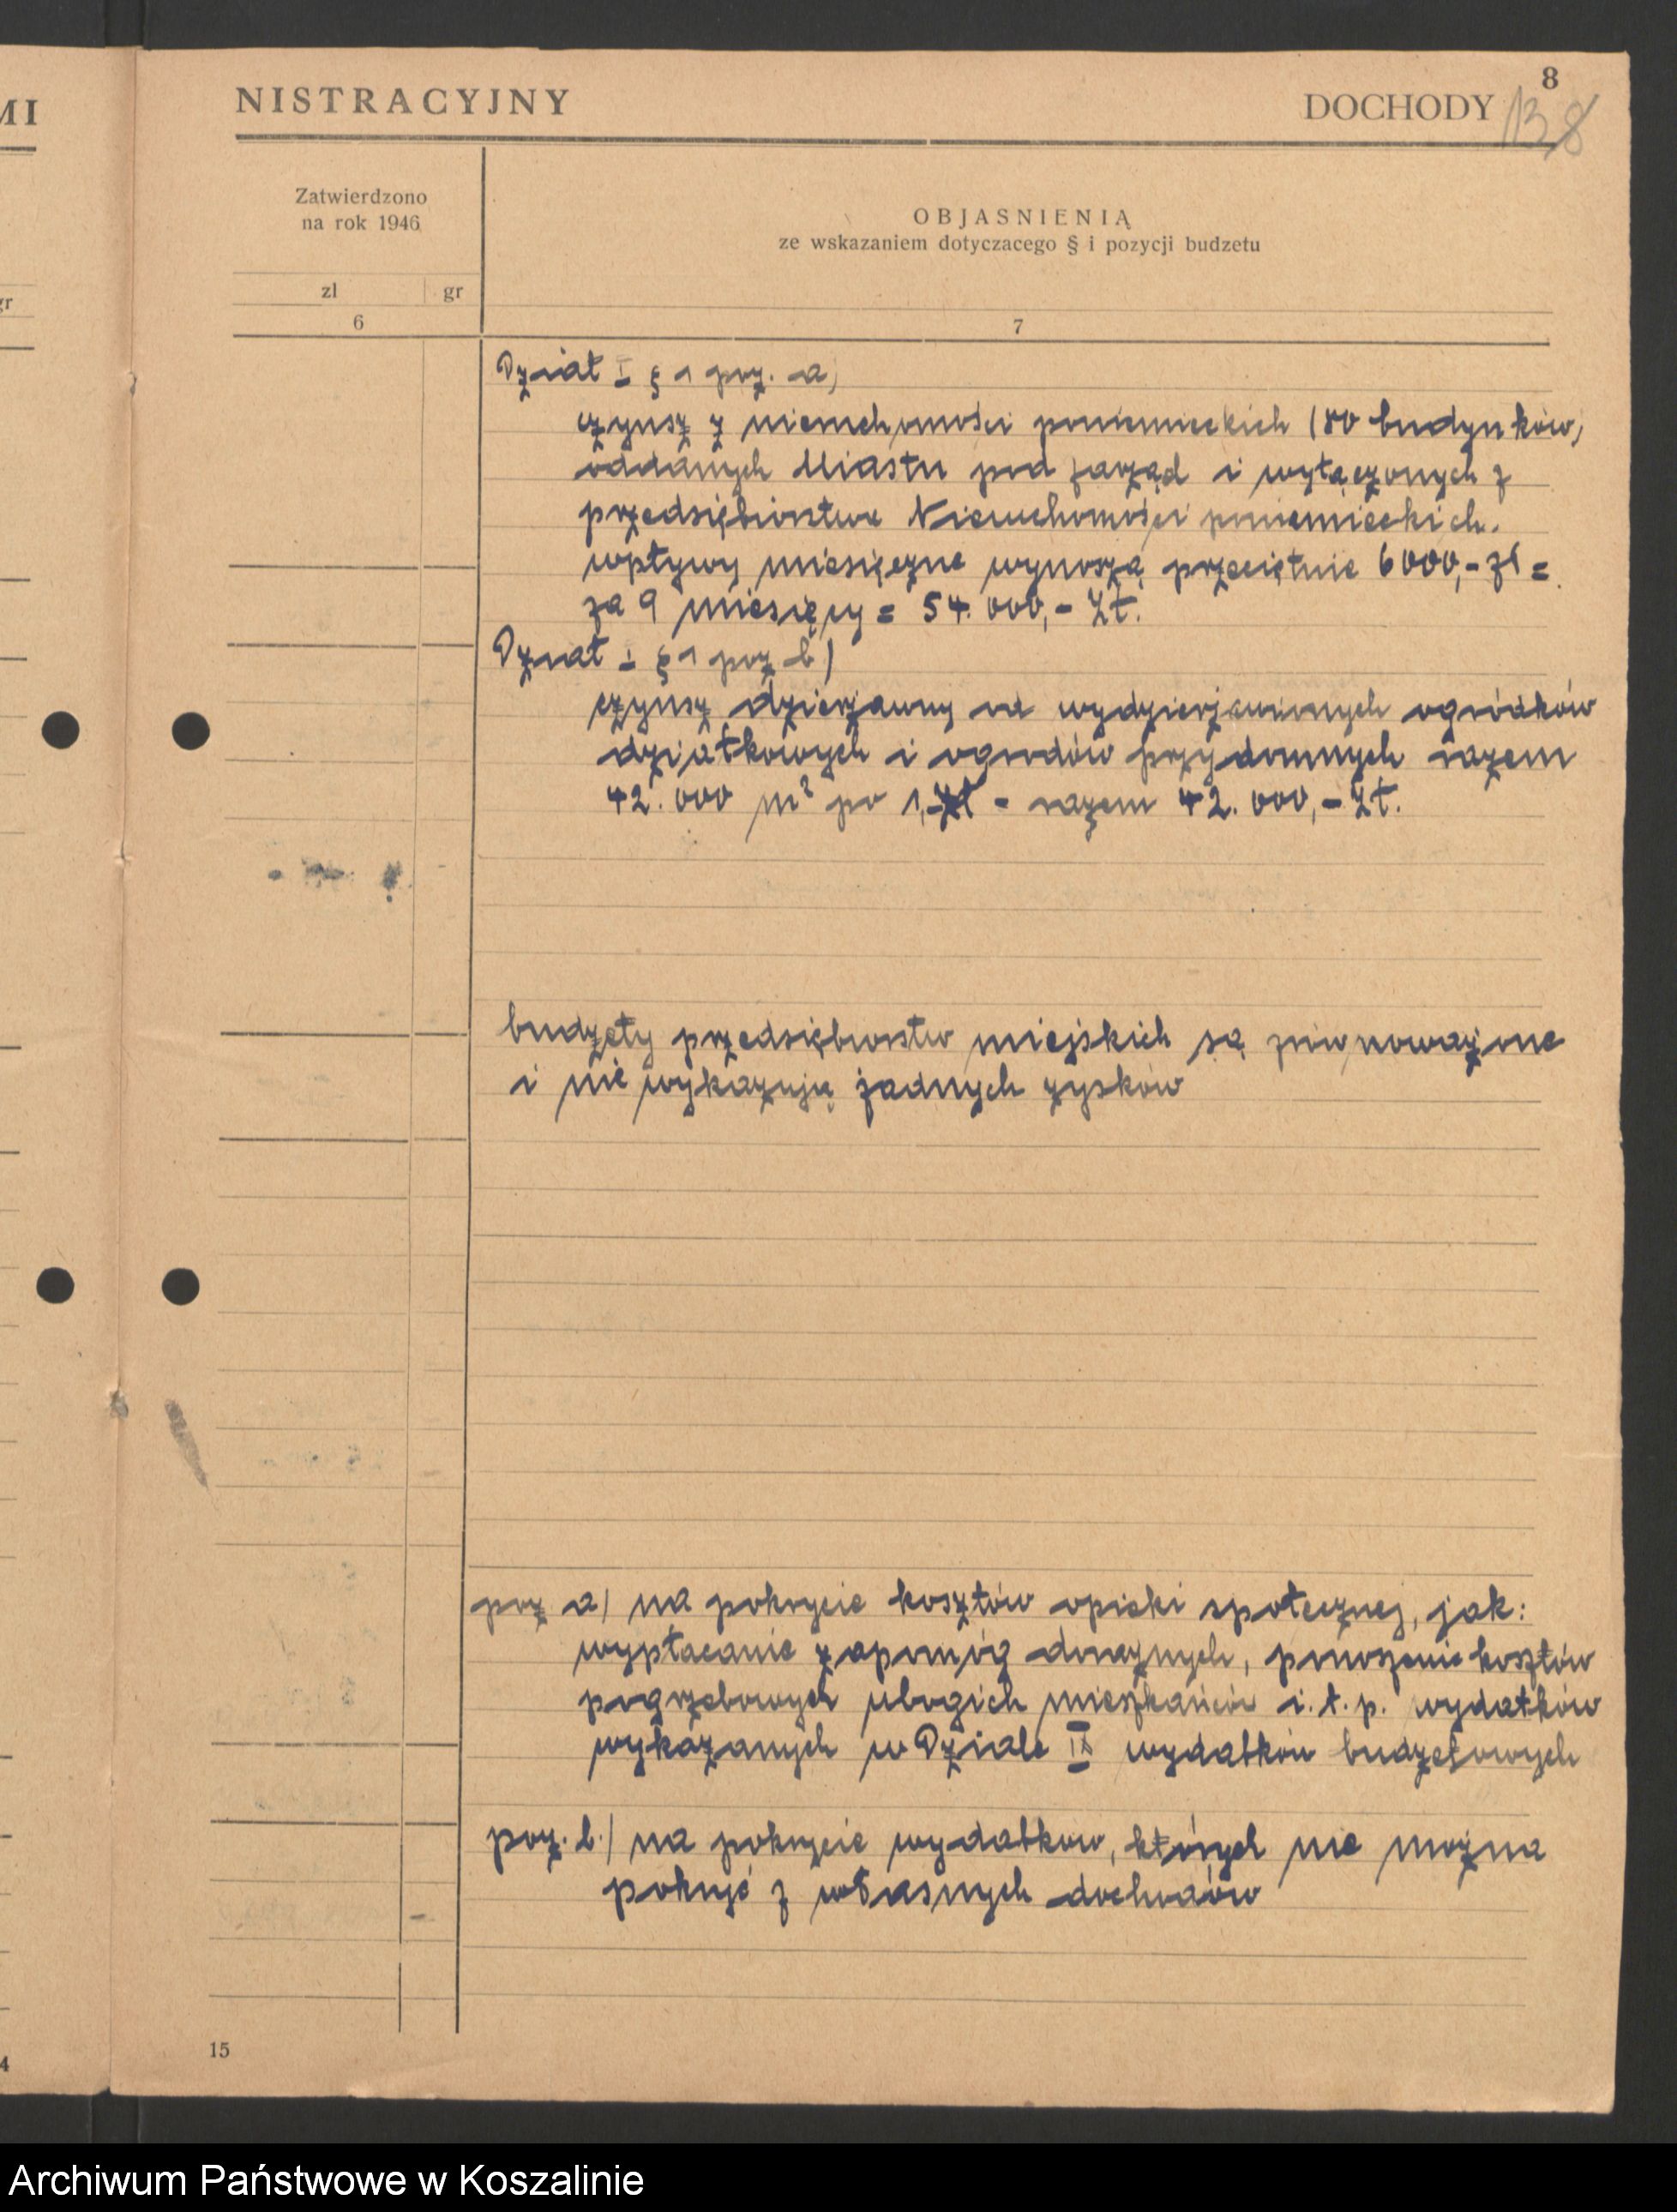 MI
NISTRACYJNY
DOCHODY
8
13
8
Zatwierdzono
na rok 1946
OBJASNIENIĄ
ze wskazaniem dotyczacego § i pozycji budzetu
zl gr
gr
6
7
Dział I § 1 poz. a)
czynsz z nieruchomości poniemieckich (80 budynków)
oddanych Miastu pod zarząd i wyłączonych z
przedsiębiorstwa Nieruchomości poniemieckich.
wpływy miesięczne wynoszą przeciętnie 6000,- zł =
za 9 miesięcy = 54.000,- zł.
Dział I § 1 poz b)
czynsz dzierżawny od wydzierżawionych ogródków
działkowych i ogrodów przydomnych razem
42.000 m² po 1,- zł = razem 42.000,- zł.
budżety przedsiębiorstw miejskich są zrównoważone
i nie wykazują żadnych zysków
poz a) na pokrycie kosztów opieki społecznej, jak:
wypłacanie zapomóg doraźnych, ponoszenie kosztów
pogrzebowych ubogich mieszkańców i.t.p. wydatków
wykazanych w Dziale IX wydatków budżetowych
poz. b.) na pokrycie wydatków, których nie można
pokryć z własnych dochodów
15
4
Archiwum Państwowe w Koszalinie